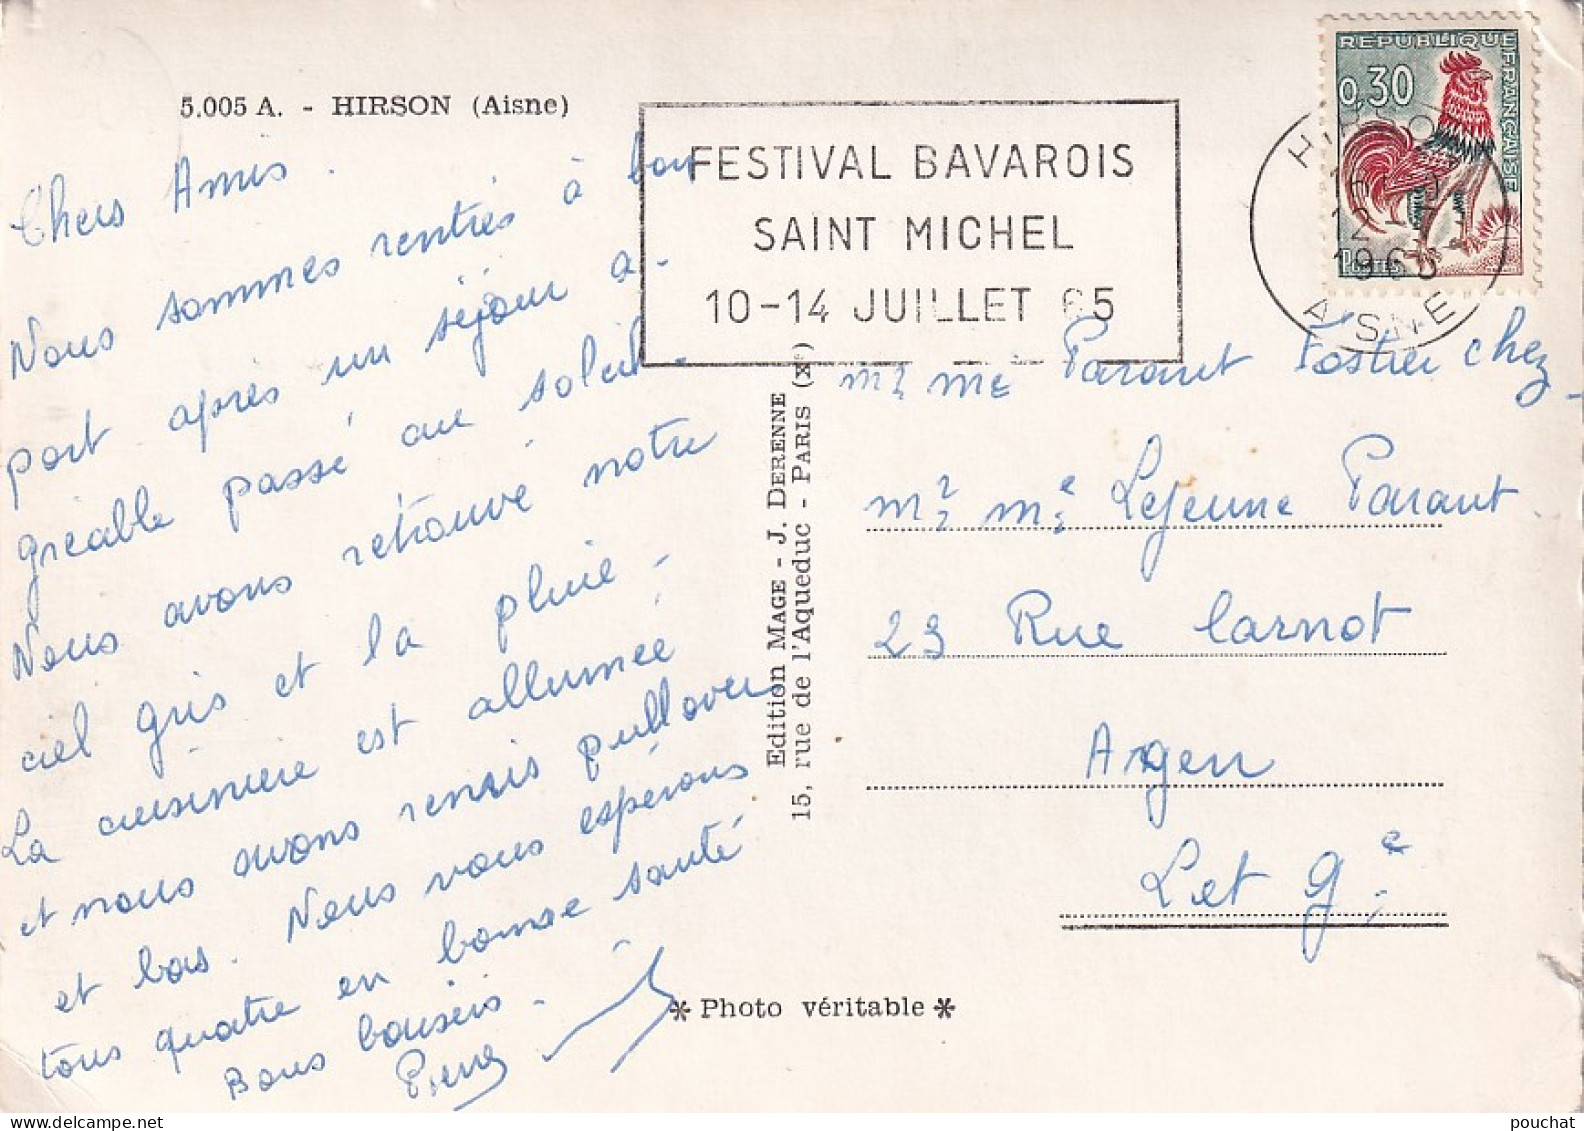 5.005 A. - HIRSON (Aisne)
Chers Amis.
Nous sommes rentrés à bon
port après un séjour a-
gréable passé au soleil.
Nous avons retrouvé notre
ciel gris et la pluie,
La cuisinière est allumée
et nous avons remis pullover
et bas. Nous vous espérons
tous quatre en bonne santé
Bons baisers.
Pierre
Edition MAGE - J. DERENNE
15, rue de l'Aqueduc - PARIS (Xe)
FESTIVAL BAVAROIS
SAINT MICHEL
10-14 JUILLET 65
REPUBLIQUE FRANÇAISE
0,30
POSTES
HIRSON
12-7
1965
AISNE
Mr Me Parant Postier chez
Mr Me Lejeune Parant.
23 Rue Carnot
Agen
Let Ge
* Photo véritable *
pouchat